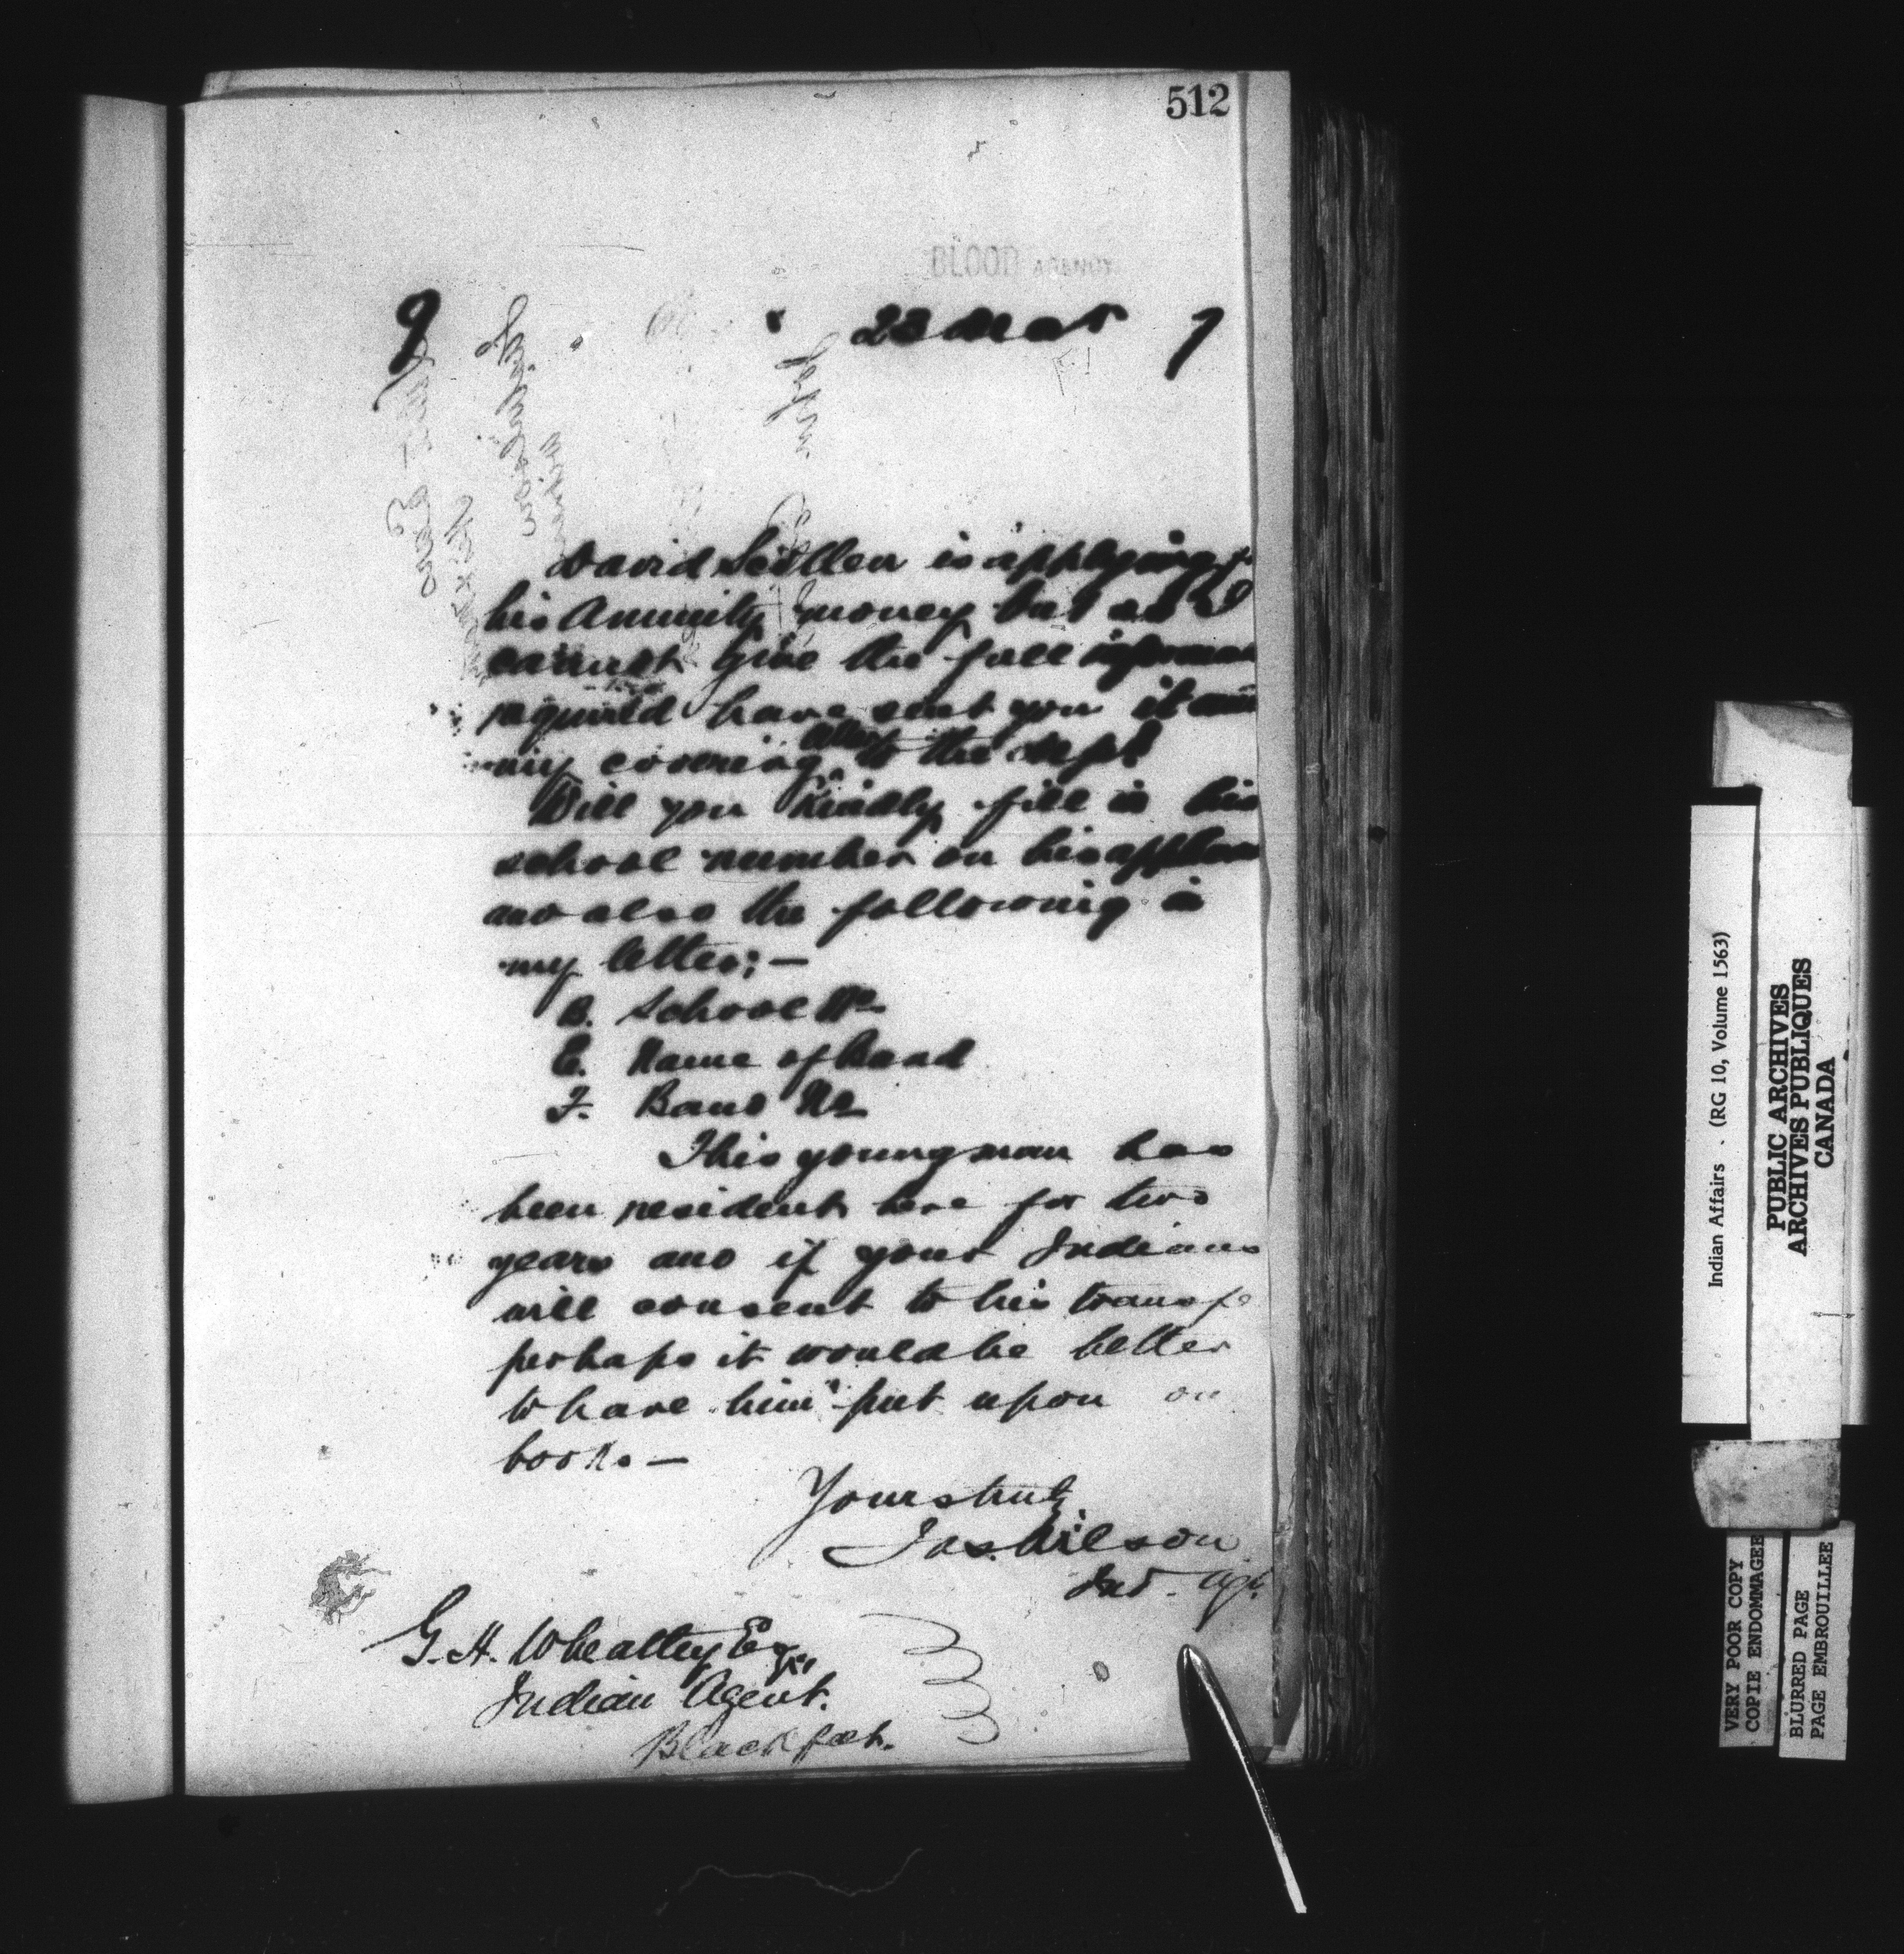 512
BLOOD AGENCY
9 23 Mar 7
David Scollen is applying
his Annuity money but as I
cannot give the full
required have sent you it
my covering letter to the Dept
Will you Kindly fill in his
school number on his
and also the following in
my letter; —
B. School No
C. Name of Band
F. Band No
This young man has
been resident here for two
years and if your Indians
will consent to his transfe
perhaps it would be better
to have him put upon ou
books —
Yours truly
Jas. Wilson
Ind. Agt.
G. H. Wheatley Esq
Indian Agent.
Blackfoot.
Indian Affairs . (RG 10, Volume 1563)
PUBLIC ARCHIVES
ARCHIVES PUBLIQUES
CANADA
VERY POOR COPY
COPIE ENDOMMAGEE
BLURRED PAGE
PAGE EMBROUILLEE